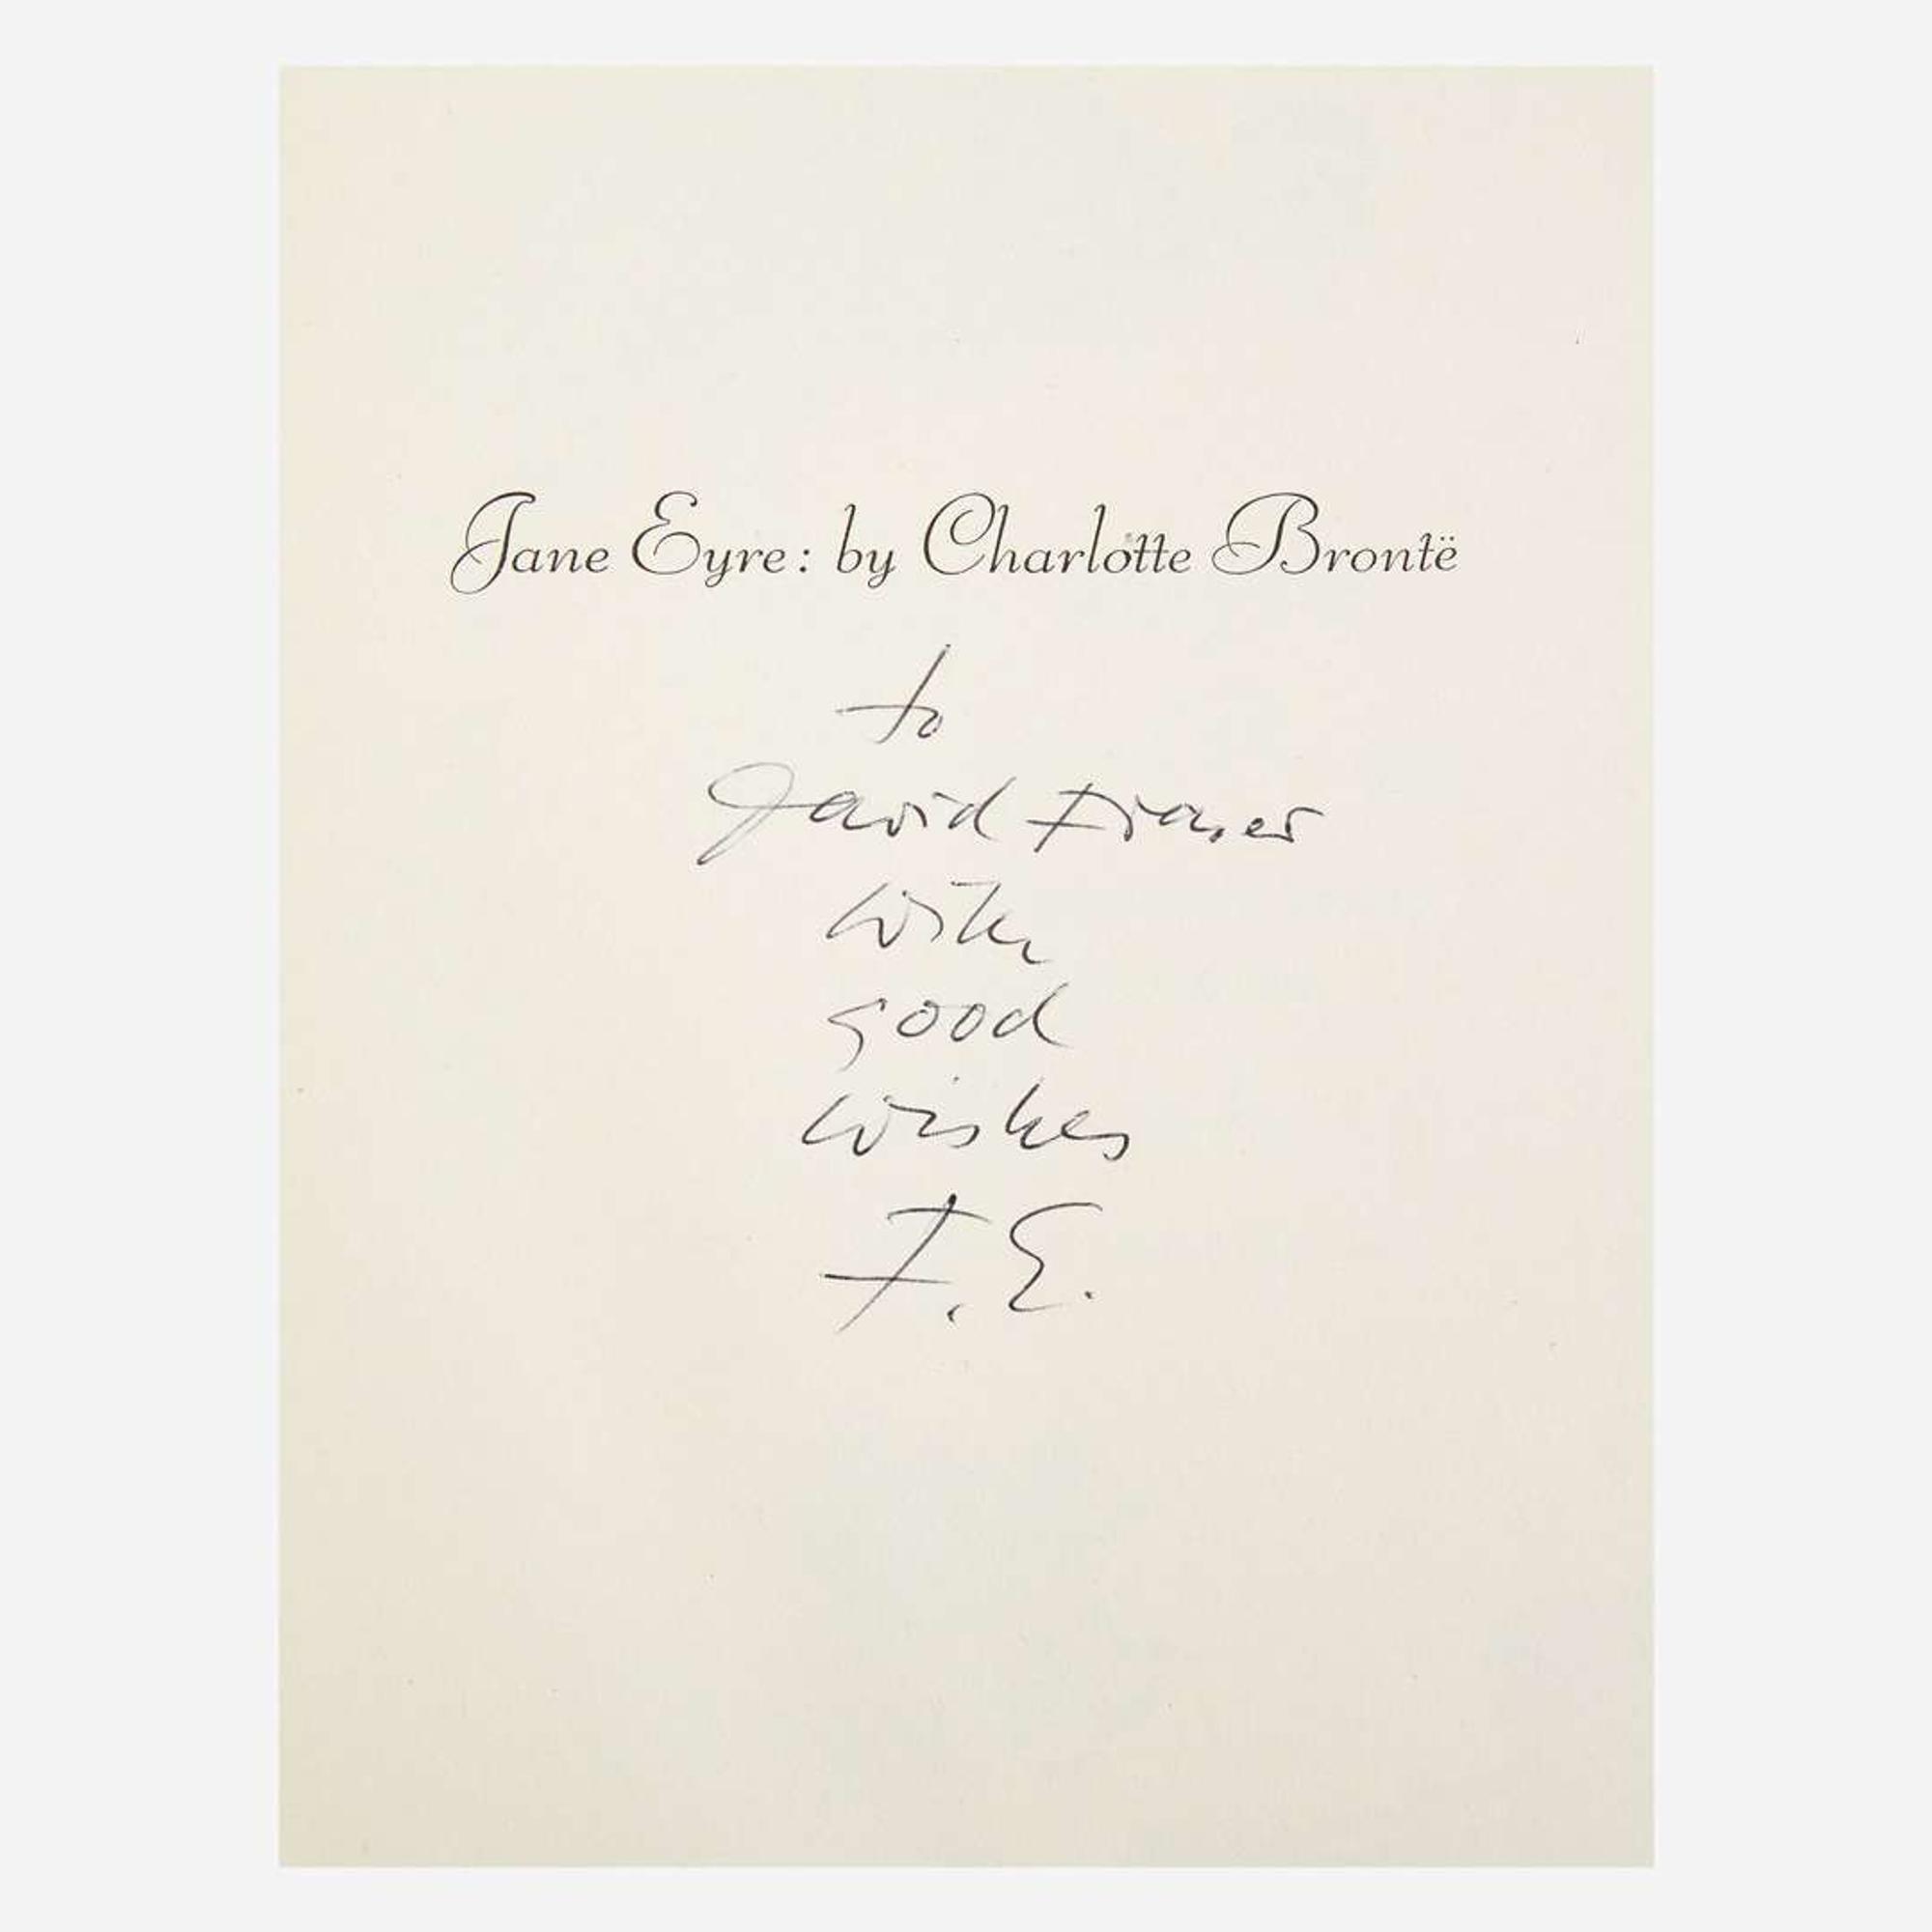 Jane Eyre: by Charlotte Brontë
to
David Fraser
with
good
wishes
F. E.